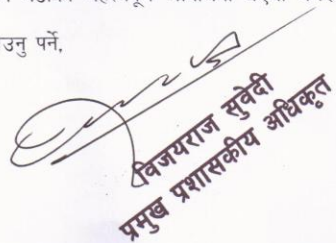 उनु पर्ने,
विजयराज सुवेदी
प्रमुख प्रशासकीय अधिकृत